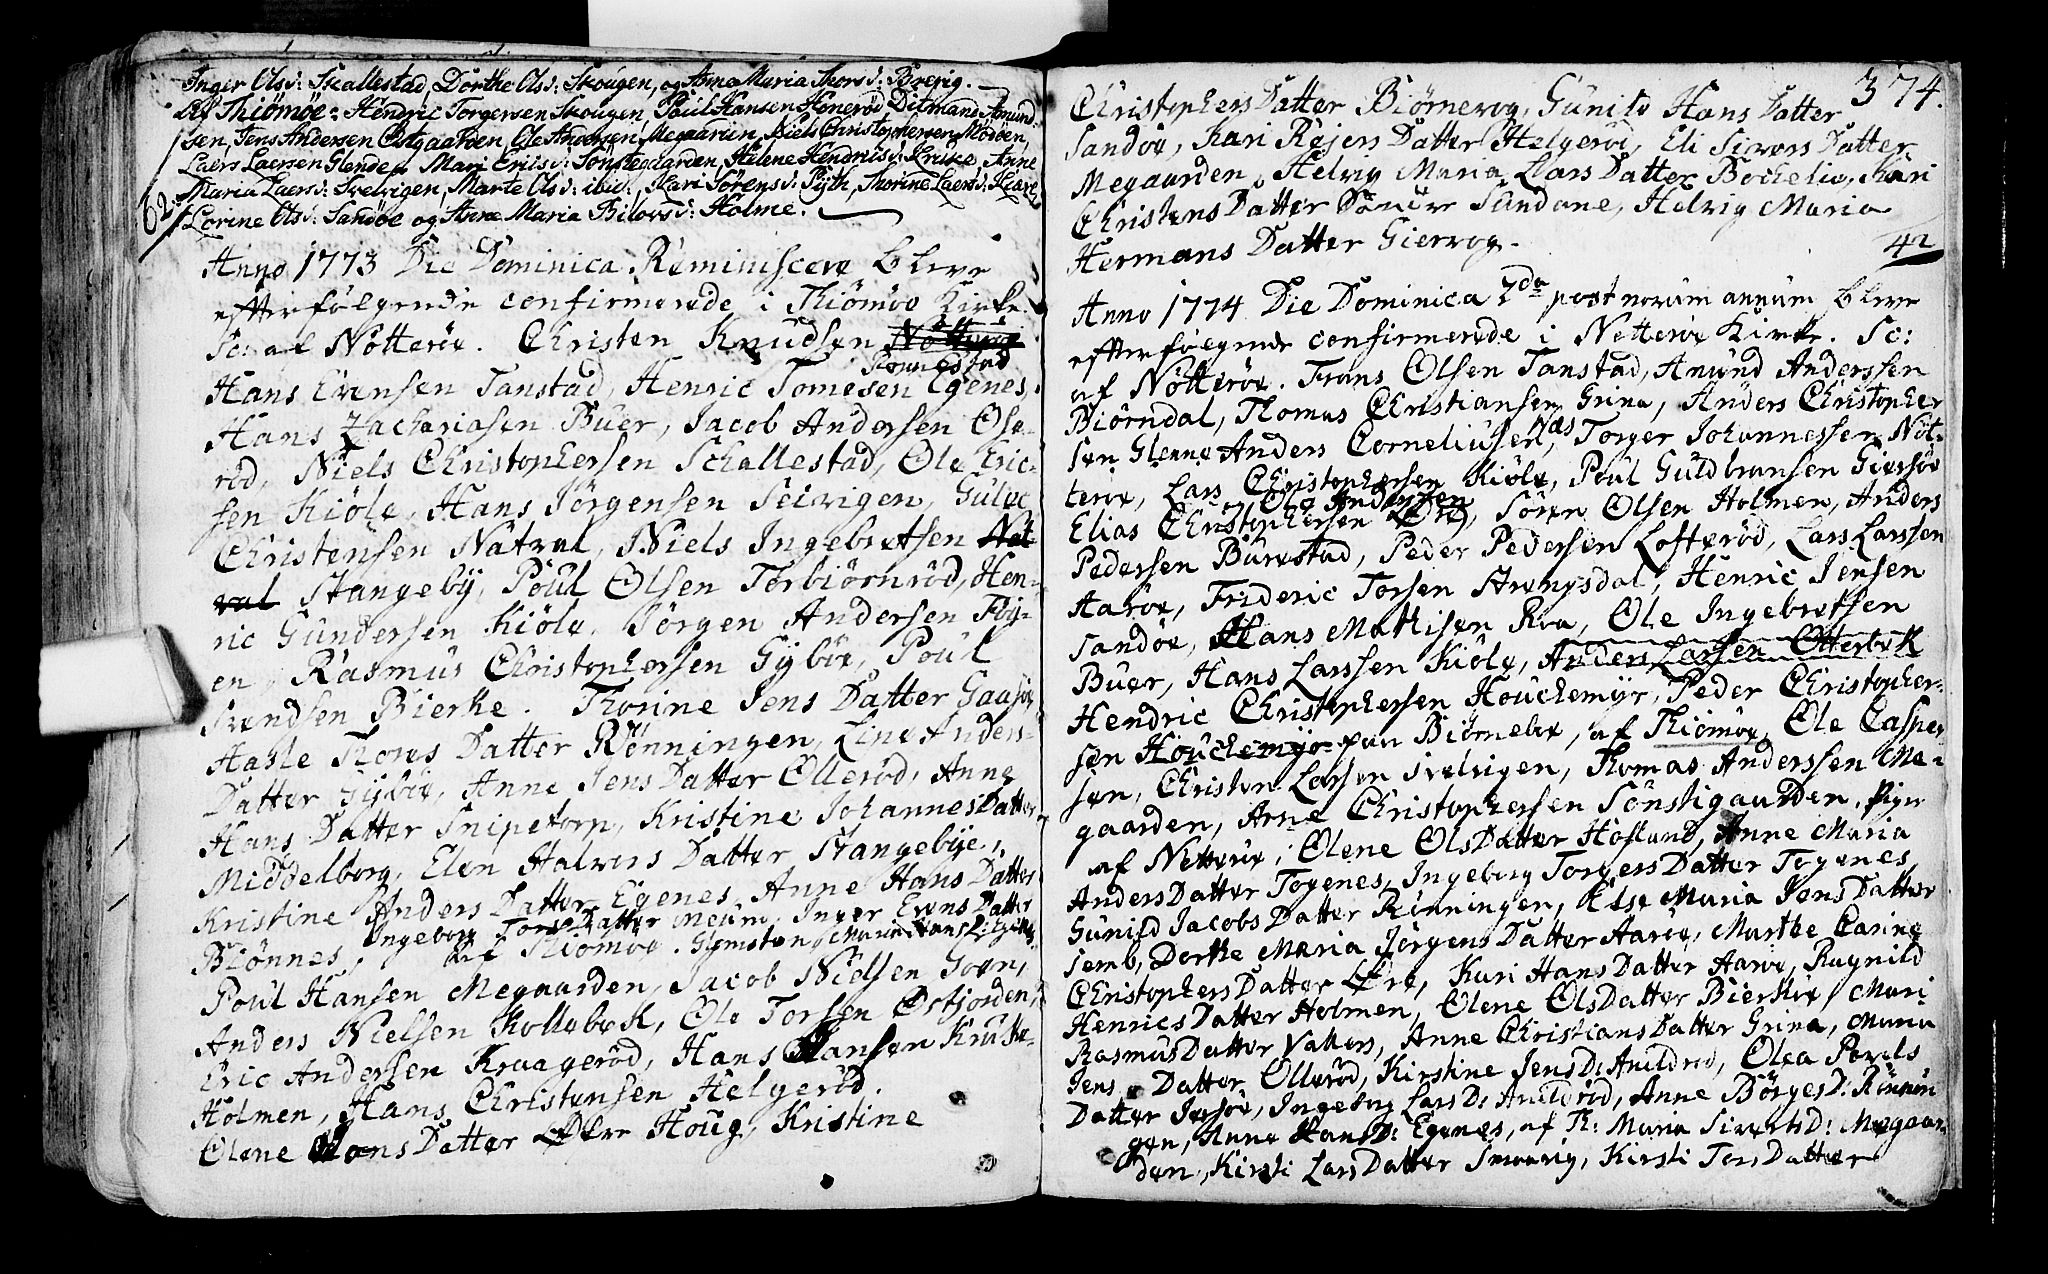 Inger Ols d: Skallestad, Dorthe Ols d: Skougen, og Anne Maria Thors d: Brevig.
Af Thiömöe: Hendric Torgersen Skougen, Poul Hansen Honeröd, Ditmand Amund-
sen, Jens Andersen Østgaarden, Ole Andersen Megaarden, Niels Christophersen Moeöen,
Laers Laersen Glende, Mari Erics d: Sönstegaarden, Helene Hendrics d: Kruke, Anne
Maria Laers d: Svelvigen, Marte Ols d: ibid:, Kari Sörens d: Pyth, Thorine Laers d: Kiære,
62. Lorine Ols d: Sandöe og Anne Maria Bilovs d: Holme.
Anno 1773 Die Dominica. Reminiscere bleve
efterfölgende confirmerede i Thiömöe Kirke.
Sc: af Nötteröe. Christen Knudsen Nötteröe
Rönnestad
Hans Evensen Tanstad, Henric Tomesen Egenes,
Hans Zachariasen Buer, Jacob Andersen Ose-
röd, Niels Christophersen Schallestad, Ole Eric-
sen Kiöle, Hans Jörgensen Seivigen, Gulve
Christensen Nátval, Niels Ingebretsen Nat-
val Stangebÿ, Poul Olsen Torbiörnröd, Hen-
ric Gundersen Kiöle, Jörgen Andersen Föÿ-
en, Rasmus Christophersen Gÿböe, Poul
Svendsen Bierke. Thorine Jens Datter Gaasöe,
Hasle Thores Datter Rönningen, Line Anders-
Datter Gÿböe, Anne Jens Datter Olleröd, Anne
Hans Datter Snipetorp, Kristine Johannes Datter
Middelborg, Elen Halvors Datter Stangebÿe,
Kristine Anders Datter Egenes, Anne Hans Datter
Ingeborg Tores Datter Meum, Inger Evens Datter
Biönnes, Af Thiömöe.
Poul Hansen Megaarden, Jacob Nielsen Goen,
Anders Nielsen Kollebek, Ole Torsen Østjorden,
Eric Andersen Kraageröd, Hans Hansen Kruke,
Holmen, Hans Christensen Helgeröd.
Olene Hans Datter Øvre Houg, Kristine
374.
Christophers Datter Biörnevog, Gunild Hans Datter
Sandöe, Kari Rejers Datter Helgeröe, Eli Sivers Datter
Megaarden, Helvig Maria Lars Datter Bochelie, Kari
Christens Datter Söndre Sundane, Helvig Maria
Hermans Datter Giervog.
42
Anno 1774 Die Dominica 2da post novum annum bleve
efterfølgende confirmerede i Netteröe Kirke. Sc:
af Nötteröe. Frans Olsen Tanstad, Amund Anderssen
Biörndal, Thomas Christiansen Grina, Anders Christopher
sen Glenne Anders Corneliussen Næs, Torger Johannessen Nöt-
teröe, Lars Christophersen Kiöle, Poul Guldbransen Giersöe
og Ole Andersen
Elias Christophersen Øre, Sören Olsen Holmen, Anders
Pedersen Burestad, Peder Pedersen Lofteröd, Lars Larssen
Aaröe, Frideric Torsen Strengsdal, Henric Jensen
Sandöe, Hans Mathisen Roa, Ole Ingebretsen
Buer, Hans Larssen Kiöle, Anders Larssen Otterbek
Hendric Christophersen Houchemÿr, Peder Christopher-
sen Houchemÿr paa Biörneboe, af Thiömöe, Ole Casper
sen, Christen Larsen Svelvigen, Thomas Anderssen Me-
gaarden, Arne Christophersen Sönstigaarden. Piger
af Netteröe, Olene Ols Datter Hofland, Anne Maria
Anders Datter Togenes, Ingeborg Torgers Datter Togenes
Gunild Jacobs Datter Rönningen, Else Maria Jens Datter
Semb, Dorthe Maria Jörgens Datter Aaröe, Marthe Carine
Christophers Datter Øre, Kari Hans Datter Aaröe, Ragnild
Henrics Datter Holmen, Olene Ols Datter Bierke, Mari
Rasmus Datter Valløes, Anne Christians Datter Grina, Maria
Jens Datter Olleröd, Kirstine Jens D: Auldröd, Olea Povels
Datter Jersöe, Ingeborg Lars D: Auldröd, Anne Börges D: Rönnin
gen, Anne Hans D: Egenes, af Th: Maria Siverts D: Megaar
den, Kirsti Lars Datter Smörvig, Kirsti Tors Datter